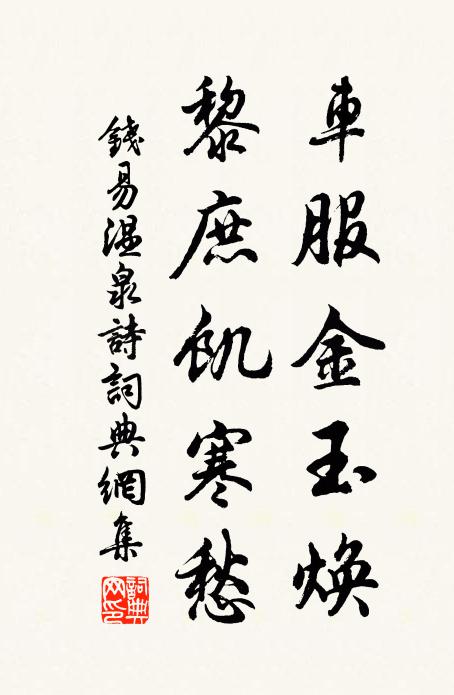 車服金玉煥
黎庶飢寒愁
錢易溫泉詩詞典網集
詞典網印